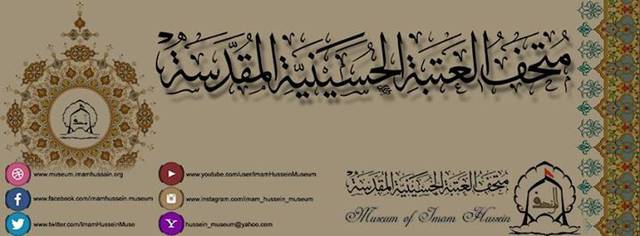 متحف العتبة الحسينية المقدسة
www.museum.imamhussein.org
www.facebook.com/imamhussein.museum
www.twitter.com/ImamHusseinMuse
www.youtube.com/user/ImamHusseinMuseum
www.instagram.com/imam_hussein_museum
hussein_museum@yahoo.com
متحف العتبة الحسينية المقدسة
Museum of Imam Hussein